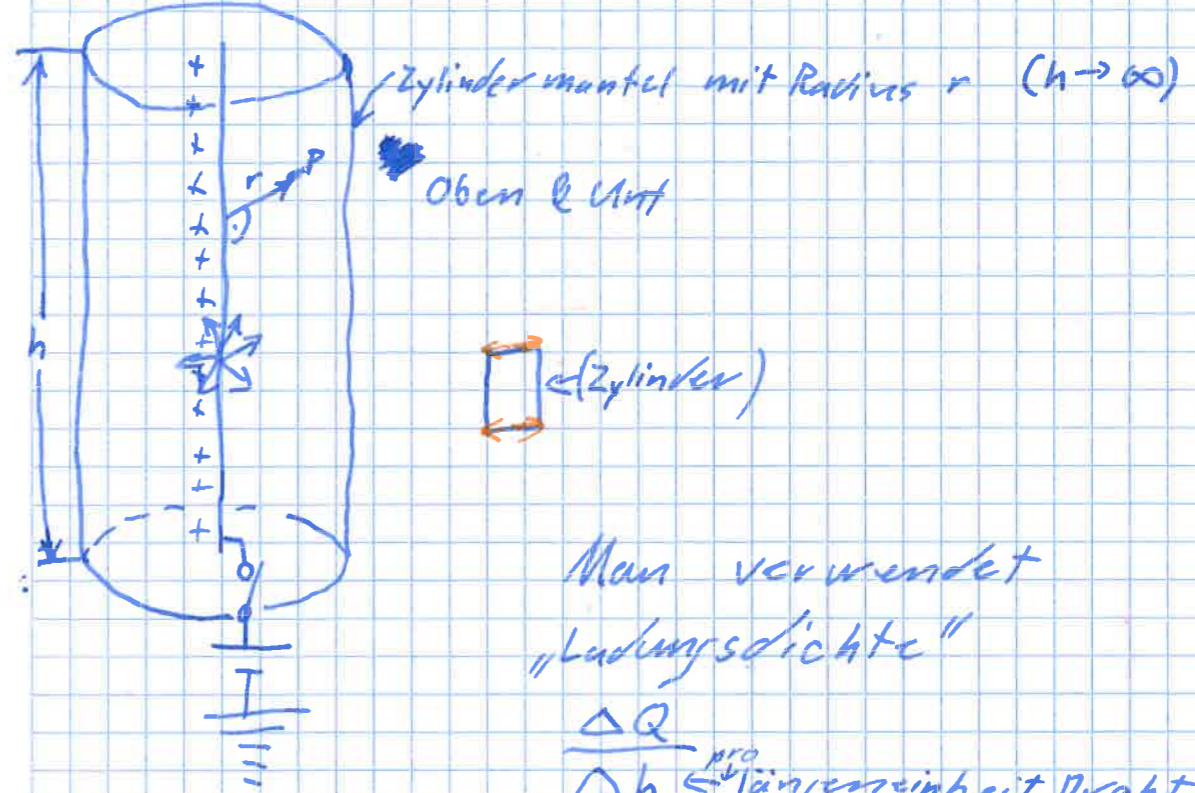 Zylindermantel mit Radius r (h → ∞)
Oben & Unt
r P
h
(Zylinder)
Man verwendet
„Ladungsdichte"
ΔQ
pro
Δh ← Längeneinheit Draht